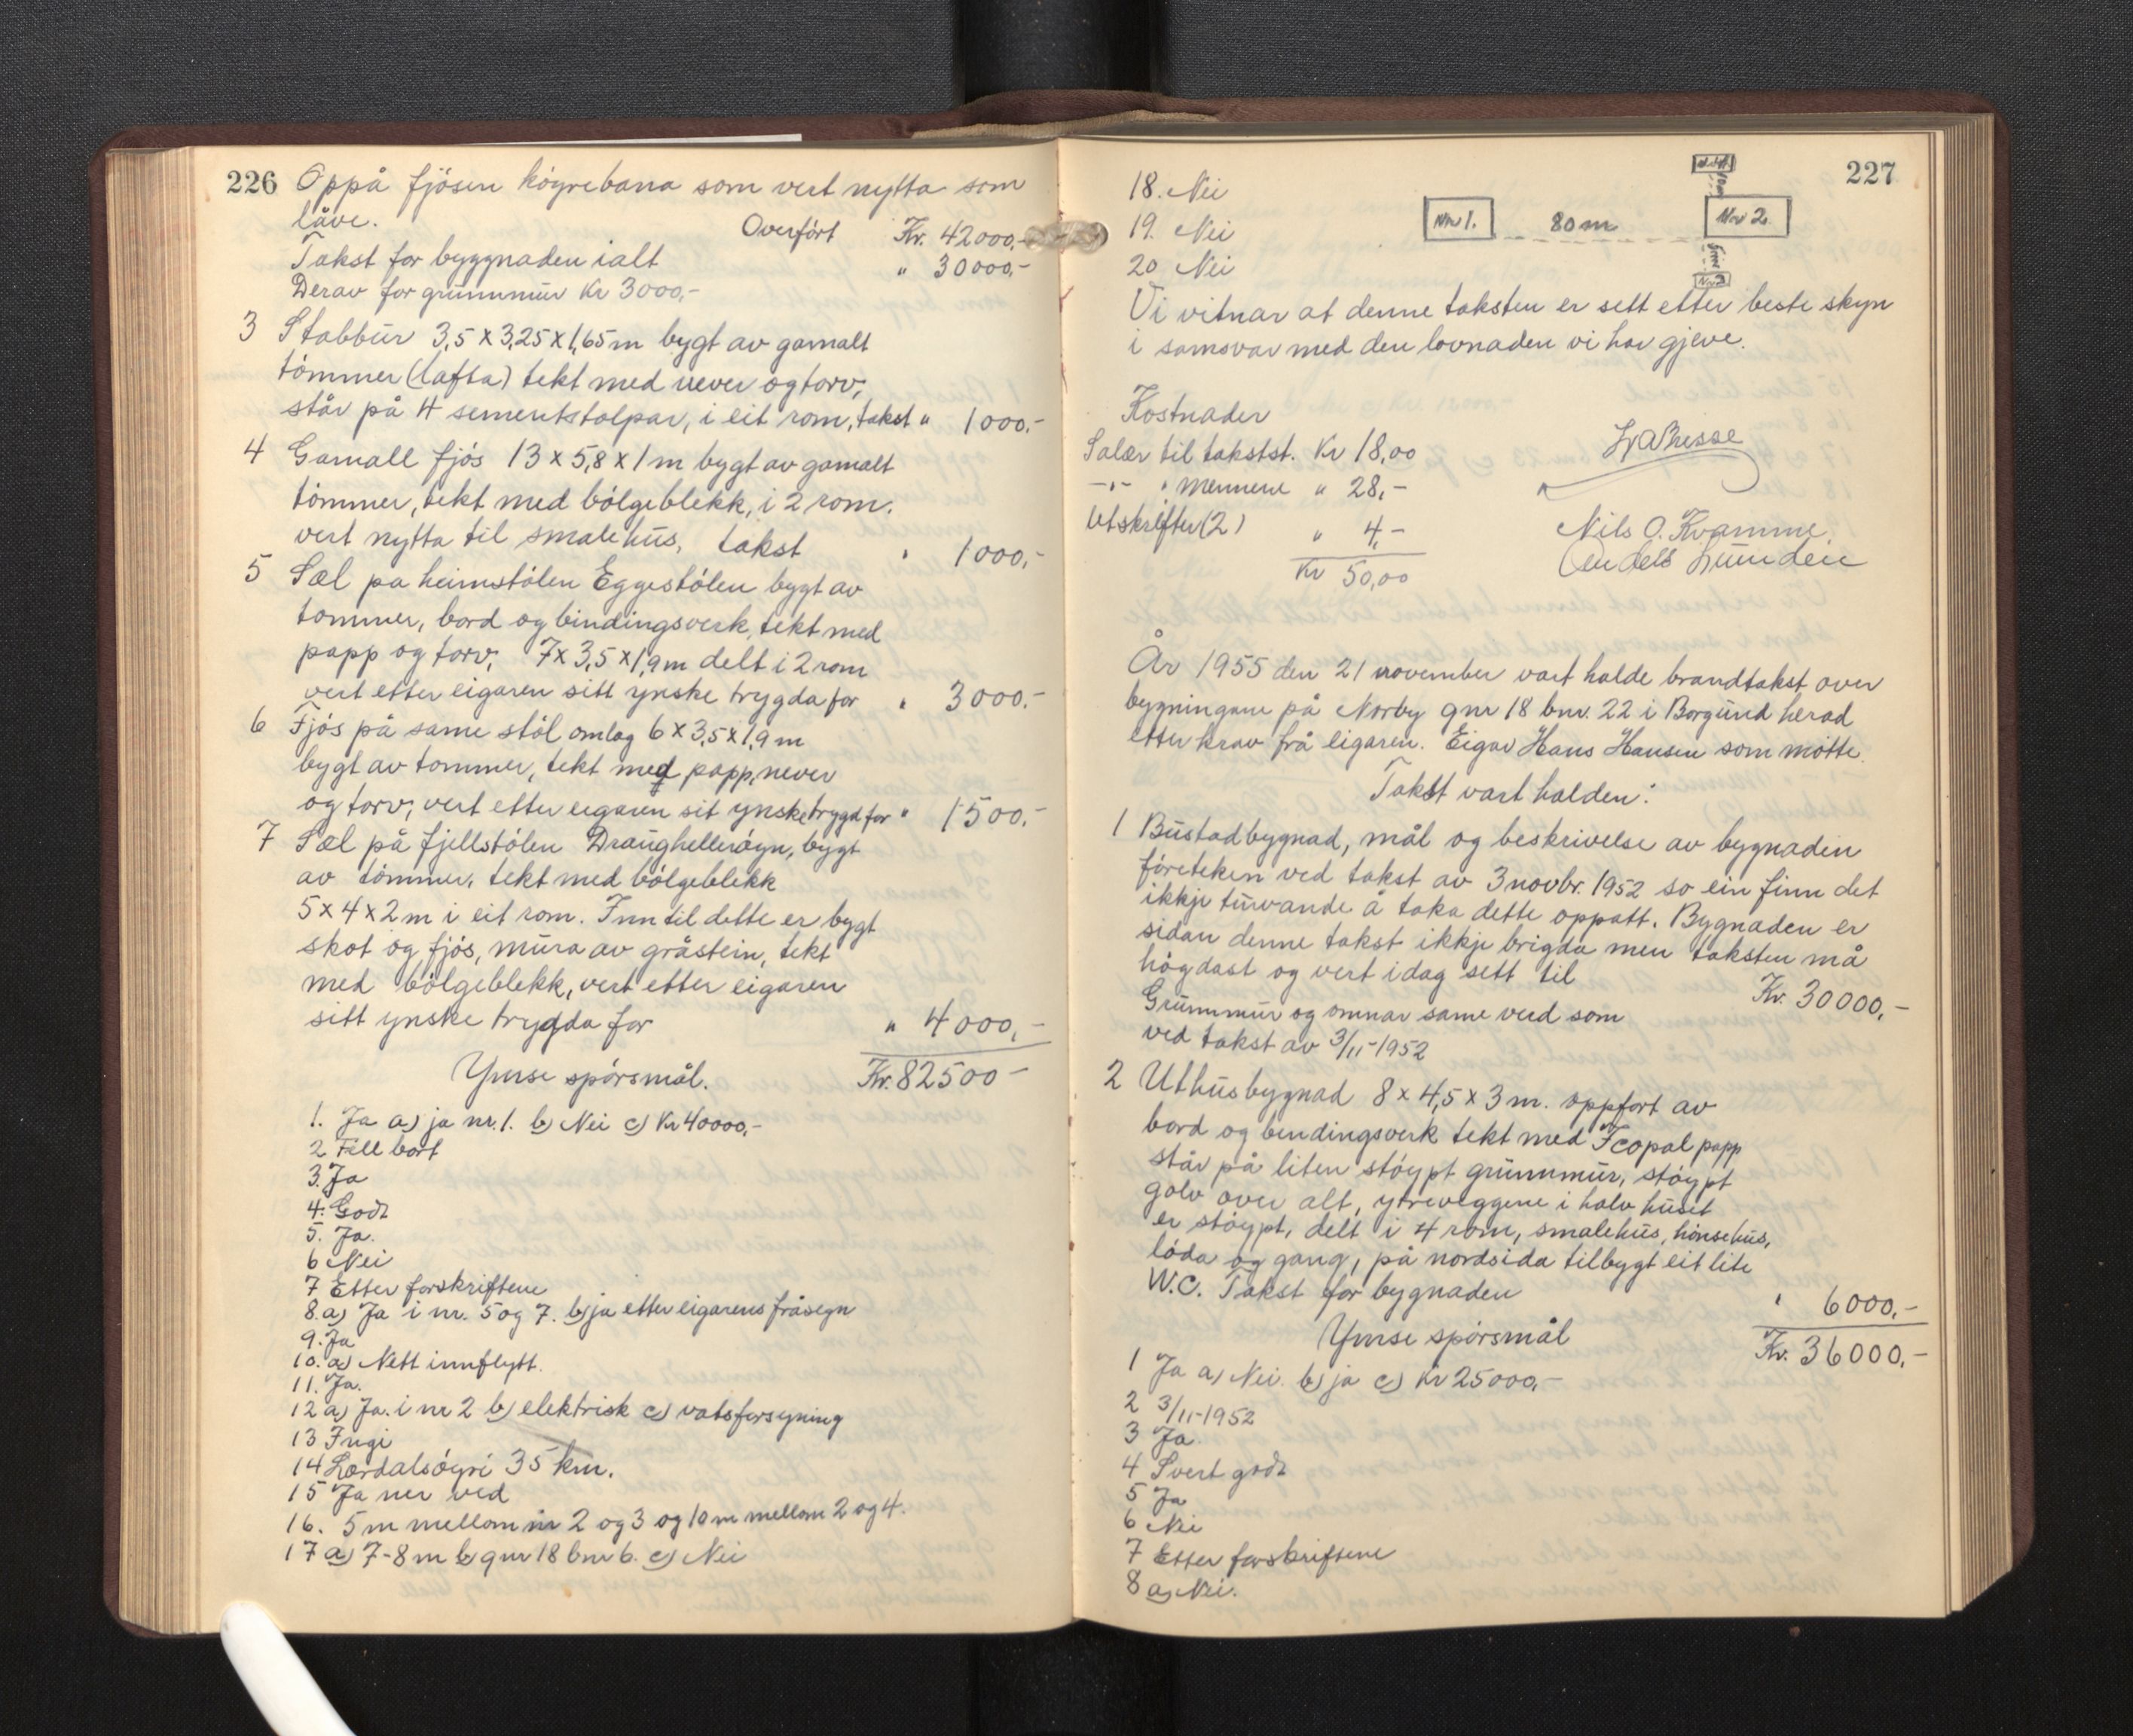 226 Oppå fjösen högrebana som vert nytta som
låve. Overfört Kr. 42000,-
Takst for byggnaden ialt " 30000,-
Derav for grunnmur Kr 3000,-
3 Stabbur 3,5 x 3,25 x 1,65 m bygt av gamalt
tömmer (lafta) tekt med never og torv,
står på 4 sementstolpar, i eit rom, takst " 1000,-
4 Gamall fjös 13 x 5,8 x 1 m bygt av gamalt
tömmer, tekt med bölgeblekk, i 2 rom.
vert nytta til smalehus, takst " 1000,-
5 Sæl pa heimstölen Eggestölen bygt av
tommer, bord og bindingsverk, tekt med
papp og torv, 7 x 3,5 x 1,9 m delt i 2 rom
vert etter eigaren sitt ynske trygda for " 3000,-
6 Fjös på same stöl omlag 6 x 3,5 x 1,9 m
bygt av tommer, tekt med papp, never
og torv, vert etter eigaren sit ynske trygd for " 1500,-
7 Sæl på fjellstölen Draughelleröyn, bygt
av tömmer, tekt med bölgeblekk
5 x 4 x 2 m i eit rom. Inn til dette er bygt
skot og fjös, mura av gråstein, tekt
med bölgeblekk, vert etter eigaren
sitt ynske trygda for " 4000,-
Ymse spörsmål. Kr. 82500 -
1. Ja a) ja nr. 1. b) Nei c) Kr 40000,-
2 Fell bort
3. Ja
4. Godt
5. Ja.
6 Nei
7 Etter forskriftene
8. a) Ja i nr. 5 og 7. b) ja etter eigarens fråsegn
9. Ja
10. a) Nett innflytt.
11. Ja.
12 a) Ja. i nr 2 b) elektrisk c) vatsforsyning
13 Ingi
14 Lærdalsöyri 35 km.
15 Ja ner ved
16. 5 m mellom nr 2 og 3 og 10 m mellom 2 og 4.
17 a) 7-8 m b) gnr 18 bnr 6. c) Nei
227
18. Nei
19. Nei
20 Nei
Nr 4
10 m
Nr 1. 80 m Nr 2.
5 m
Nr 3
Vi vitnar at denne taksten er sett etter beste skyn
i samsvar med den lovnaden vi har gjeve.
Kostnader
Salær til takstst. Kr 18,00
-"- " mennene " 28,-
Utskrifter (2) " 4,-
Kr 50,00
Nils O. Kvamme
År 1955 den 21 november vart halde brandtakst over
bygningane på Norby gnr 18 bnr. 22 i Borgund herad
etter krav frå eigaren. Eigar Hans Hansen som mötte.
Takst vart halden:
1 Bustadbygnad, mål og beskrivelse av bygnaden
företeken ved takst av 3 novbr. 1952 so ein finn det
ikkje turvande å taka dette oppatt. Bygnaden er
sidan denne takst ikkje brigda men taksten må
högdast og vert idag sett til Kr. 30000,-
Grunnmur og omnar same verd som
ved takst av 3/11-1952
2 Uthusbygnad 8 x 4,5 x 3 m. oppfort av
bord og bindingsverk tekt med Icopal papp
står på liten stöypt grunnmur, stöypt
golv over alt, ytreveggene i halv huset
er stöypt, delt i 4 rom, smalehus, hönsehus,
löda og gang, på nordsida tilbygt eit lite
W.C. Takst for bygnaden " 6000,-
Ymse spörsmål Kr. 36000,-
1 Ja a) Nei. b) ja c) Kr 25000,-
2 3/11-1952
3 Ja.
4 Svert godt
5 Ja
6 Nei
7 Etter forskriftene
8 a) Nei.